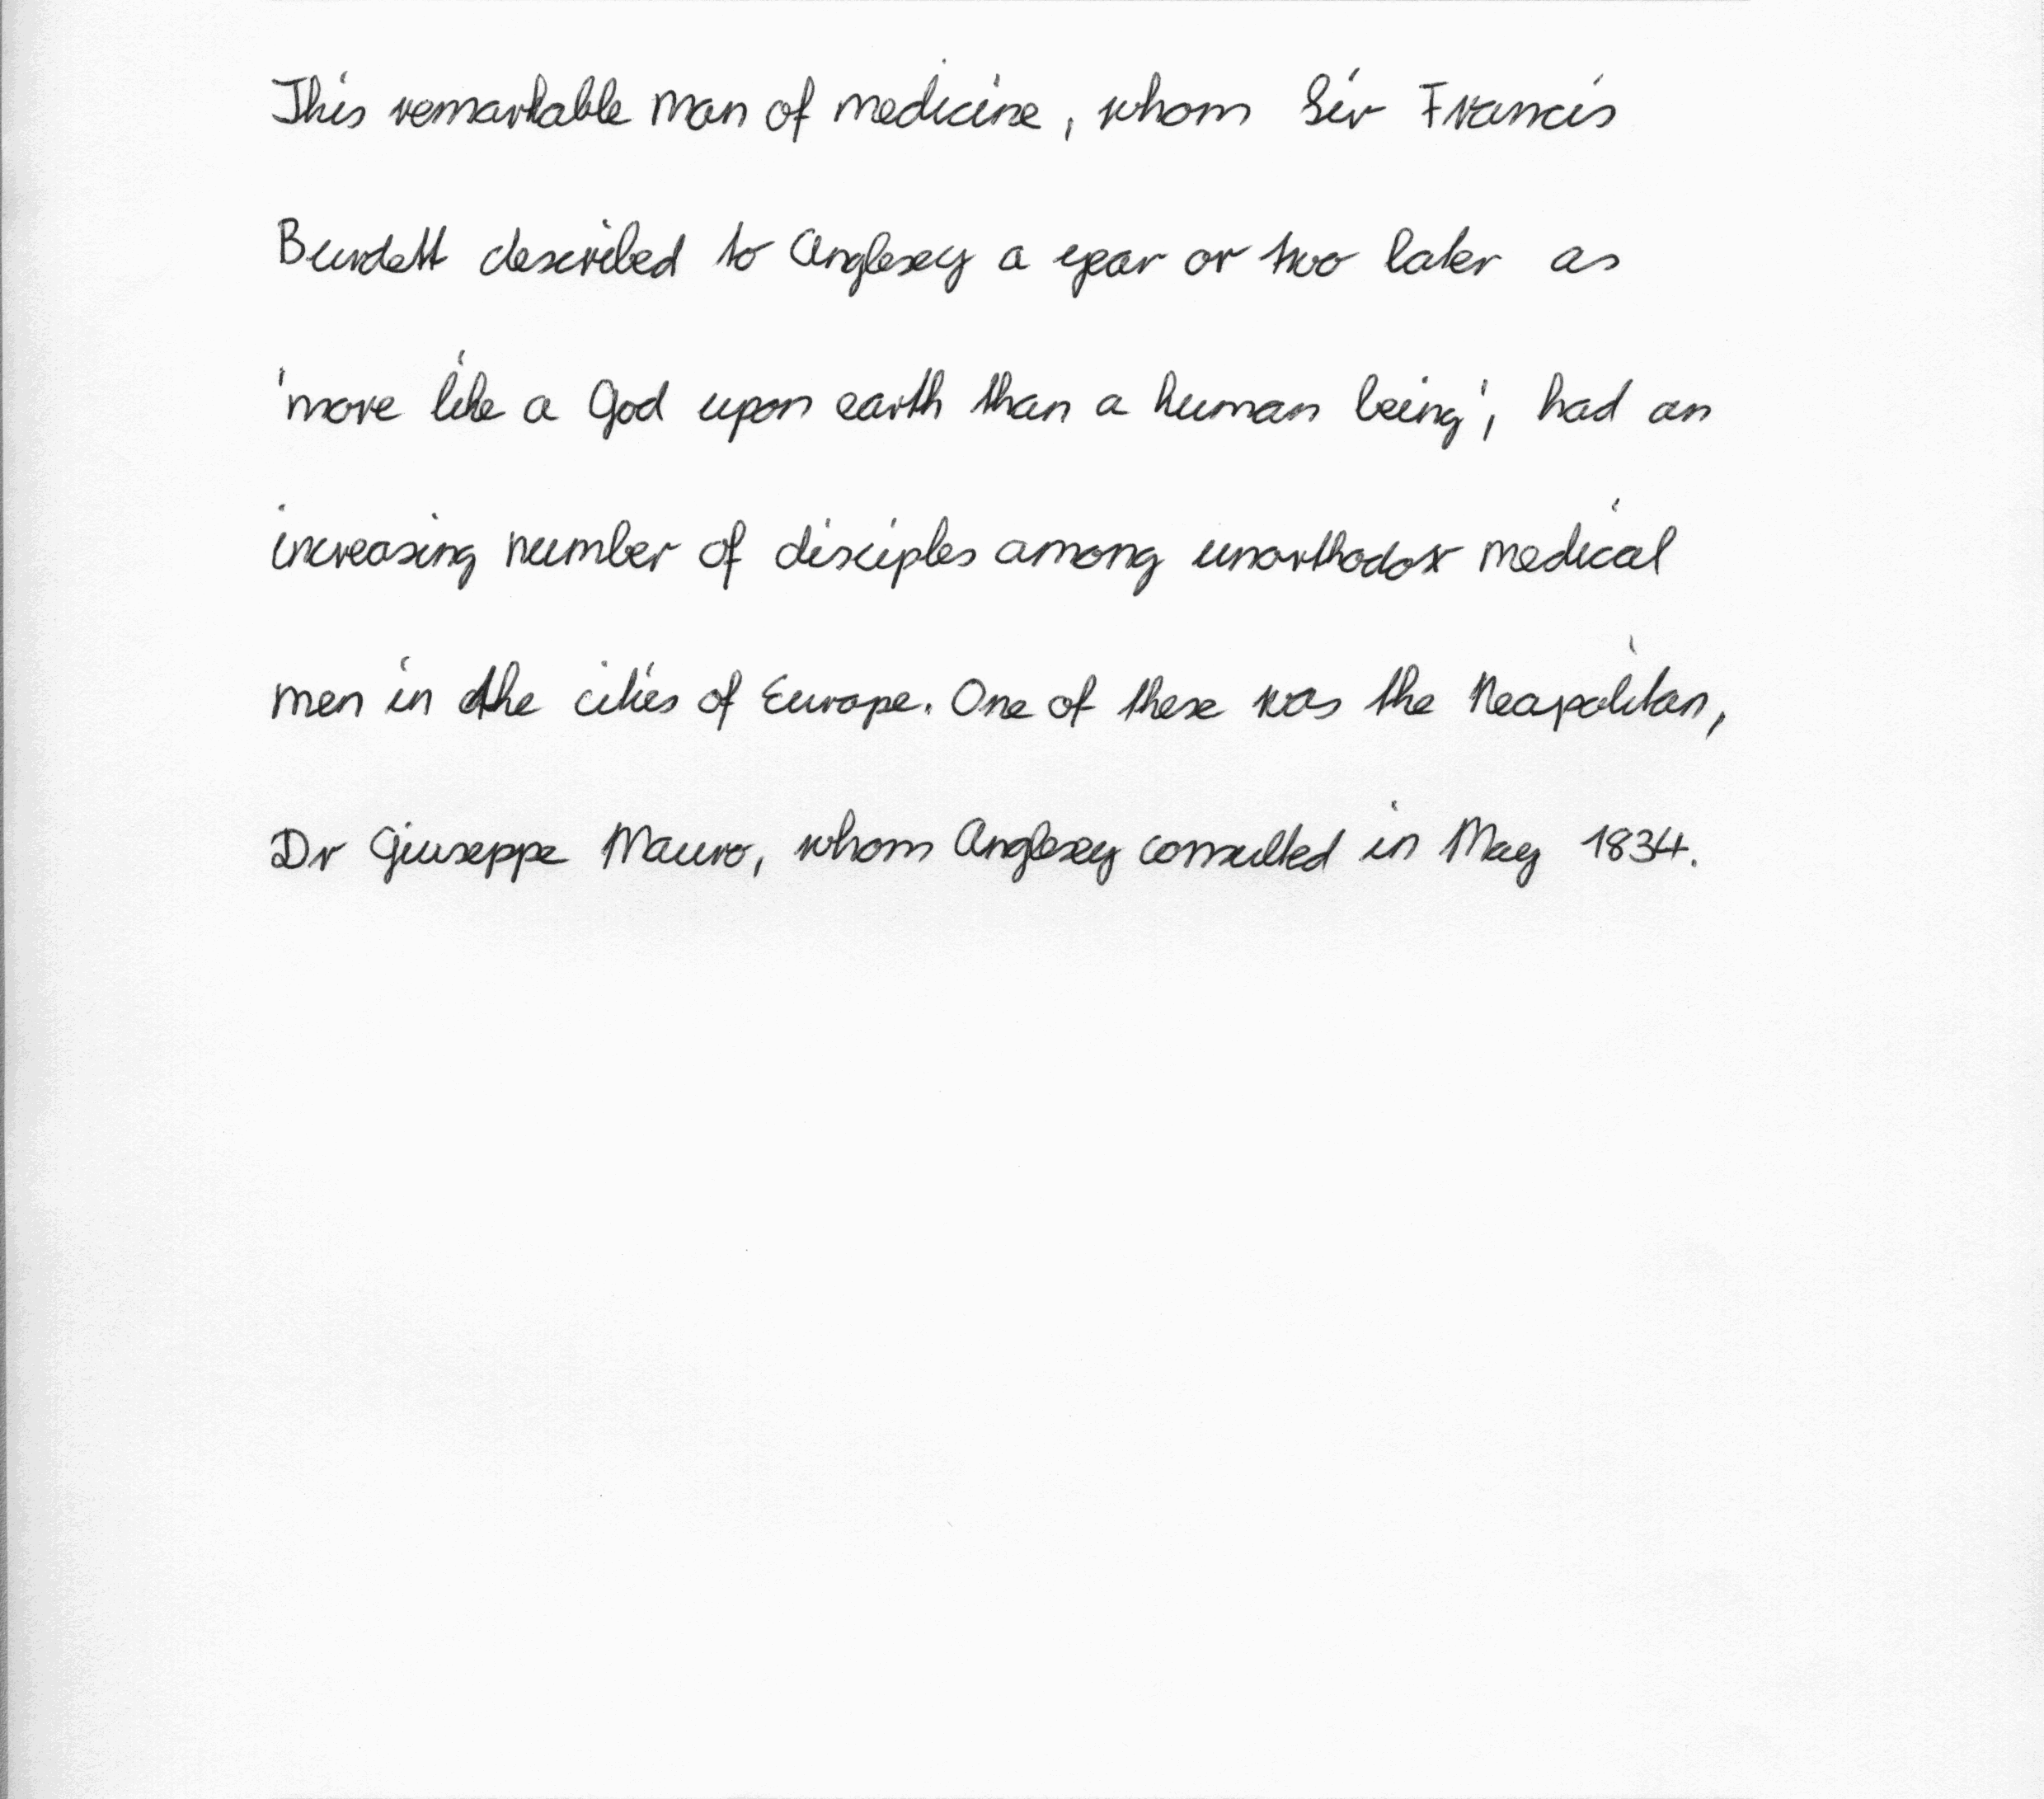 This remarkable man of medicine, whom Sir Francis
Burdett described to Anglesey a year or two later as
'more like a God upon earth than a human being', had an
increasing number of disciples among unorthodox medical
men in the cities of Europe. One of these was the Neapolitan,
Dr Giuseppe Mauro, whom Anglesey consulted in May 1834.